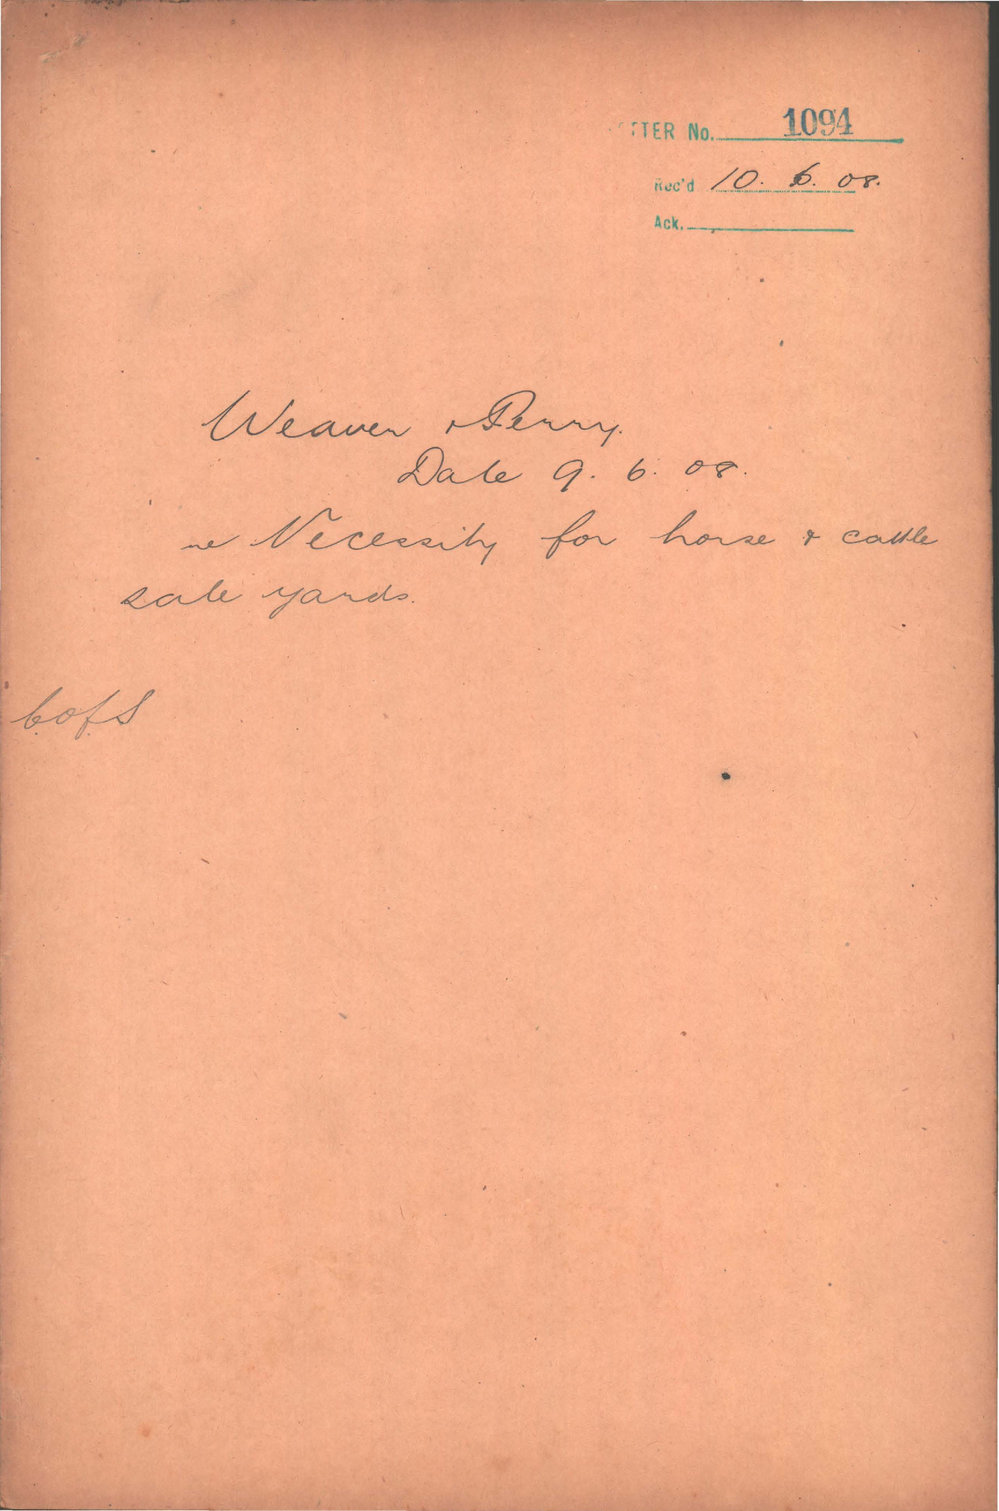 LETTER No. 1094
Rec'd 10. 6. 08.
Ack.
Weaver & Perry.
Date 9. 6. 08.
re Necessity for horse & cattle
sale yards.
C.of.S